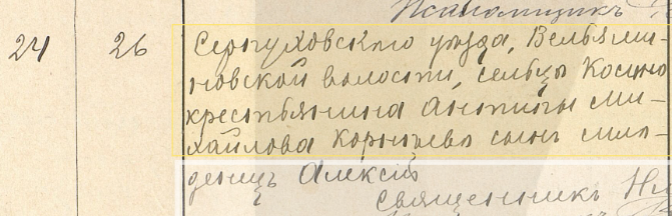 Псаломщикъ
24 26 Серпуховского уѣзда, Вельями-
новской волости, сельца Косино
крестьянина Антипы Ми-
хайлова Корнѣева сынъ мла-
денецъ Алексій
Священникъ